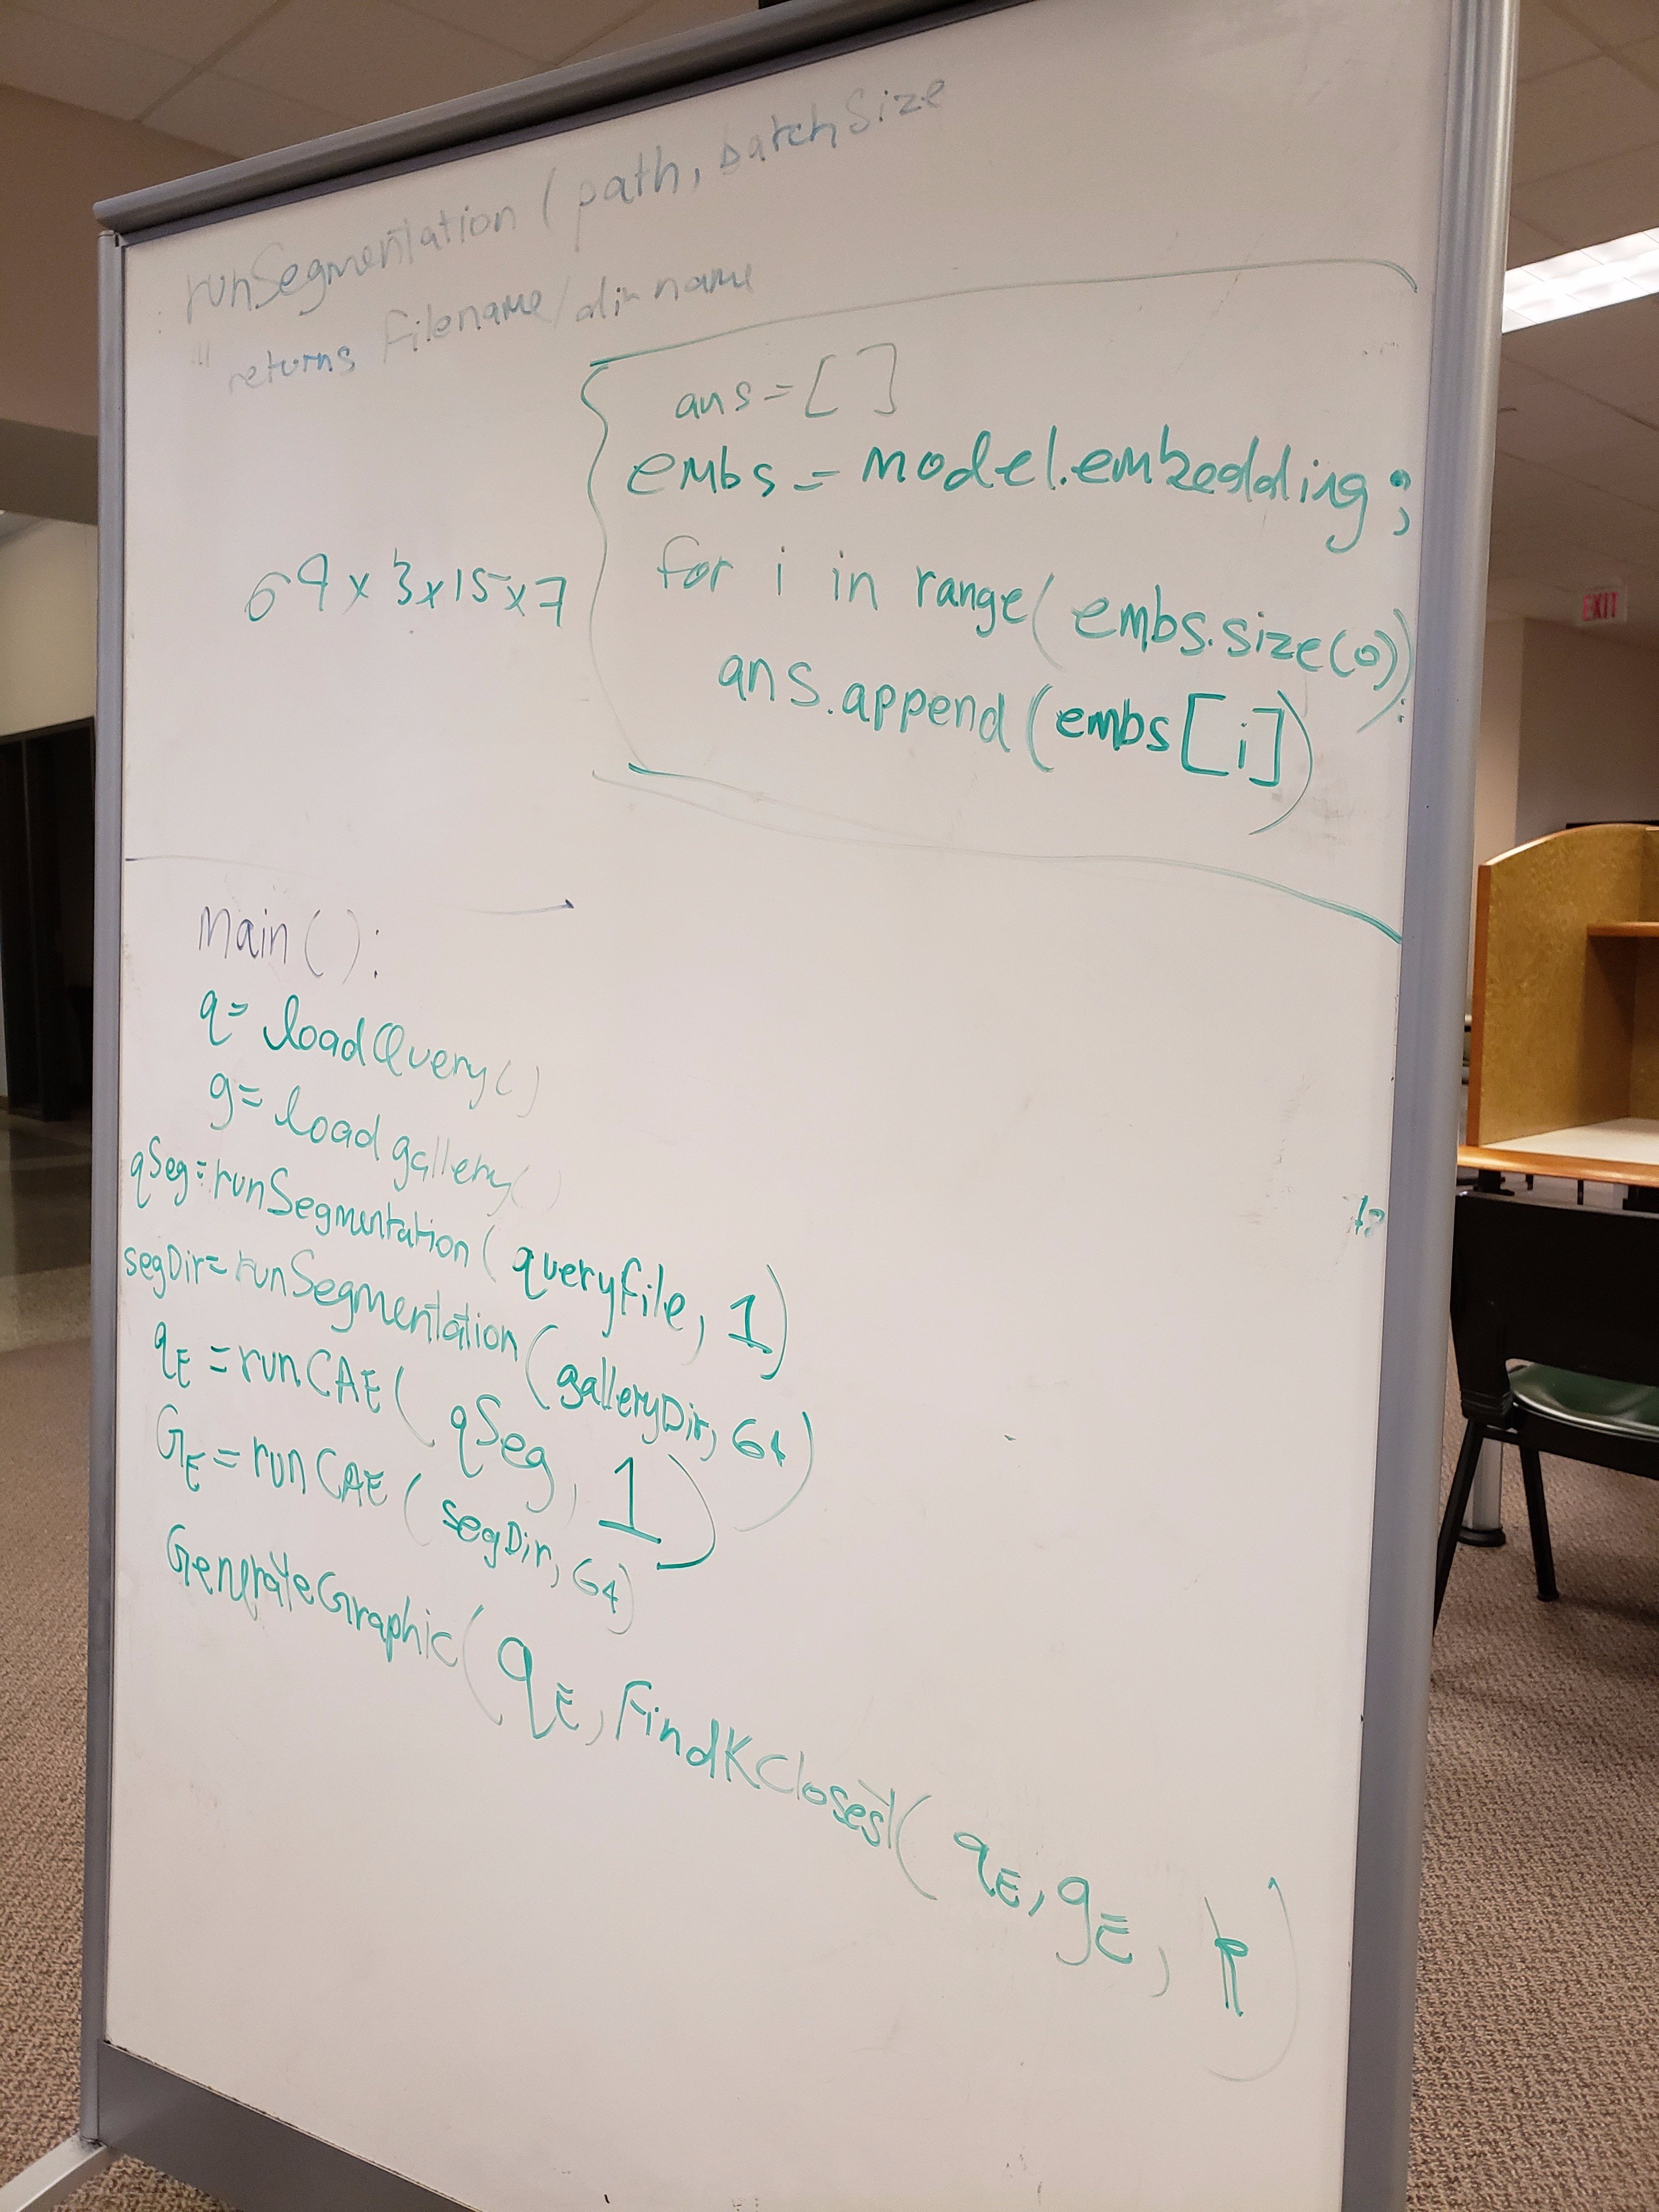 runSegmentation (path, batchSize
returns filename/dir name
ans = [ ]
embs = model.embedding;
for i in range(embs.size(0)):
ans.append(embs[i])
64 x 3 x 15 x 7
main():
q = loadQuery()
g = loadgallery()
qSeg = runSegmentation(queryfile, 1)
segDir = runSegmentation(galleryDir, 64)
qE = runCAE(qSeg, 1)
GE = runCAE(segDir, 64)
GenerateGraphic(qE, FindKClosest(qE, gE, k)
EXIT